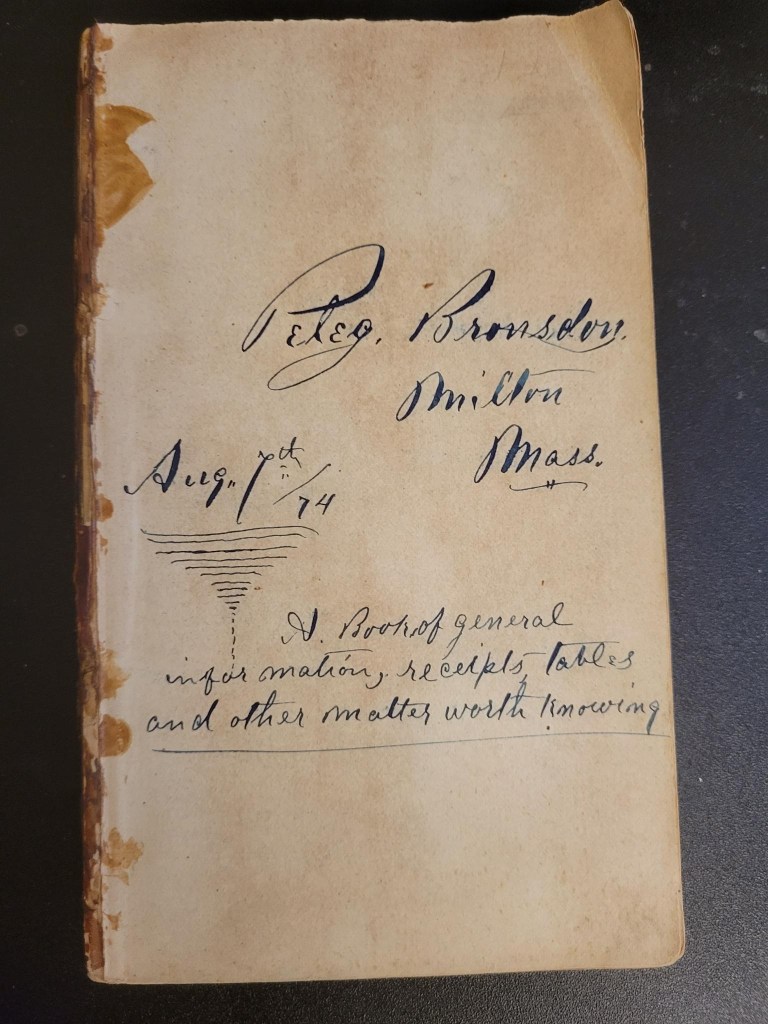 Peleg. Bronsdon.
Milton
Mass.
Aug. 7th /74
A. Book of general
information, receipts, tables
and other matter worth knowing